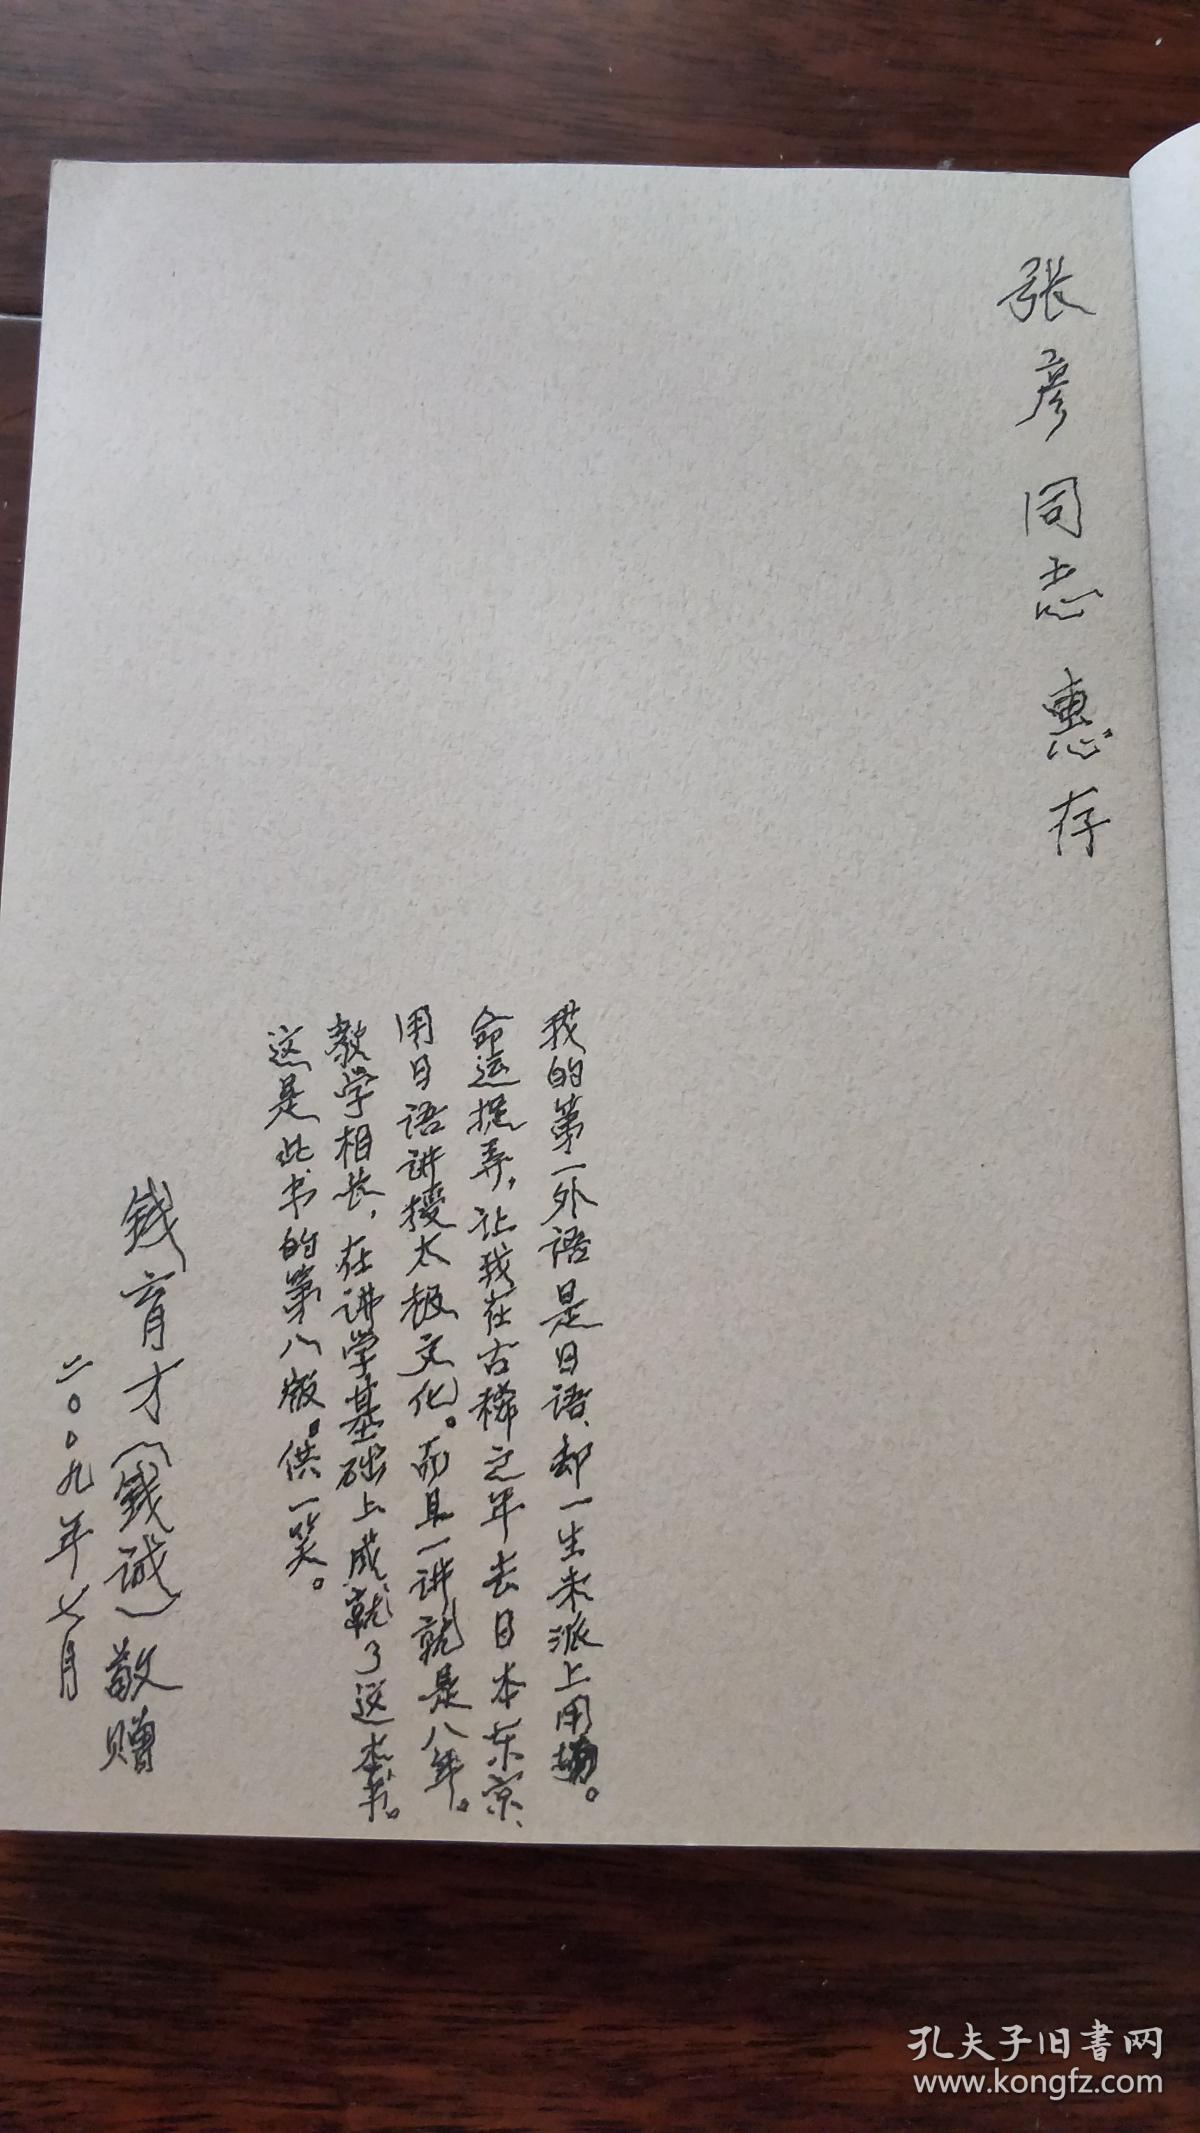 张彦同志惠存
我的第一外语是日语、却一生未派上用场。
命运捉弄，让我在古稀之年去日本东京、
用日语讲授太极文化。而且一讲就是八年。
教学相长，在讲学基础上成就了这本书。
这是此书的第八版。供一笑。
钱育才（钱诚）敬赠
二〇〇九年七月
孔夫子旧書网
www.kongfz.com